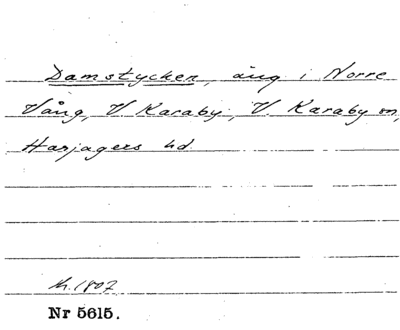 Damstycken, äng i Norre
Vång, V. Karaby, V. Karaby m,
Harjagers hd
h. 1807
Nr 5615.